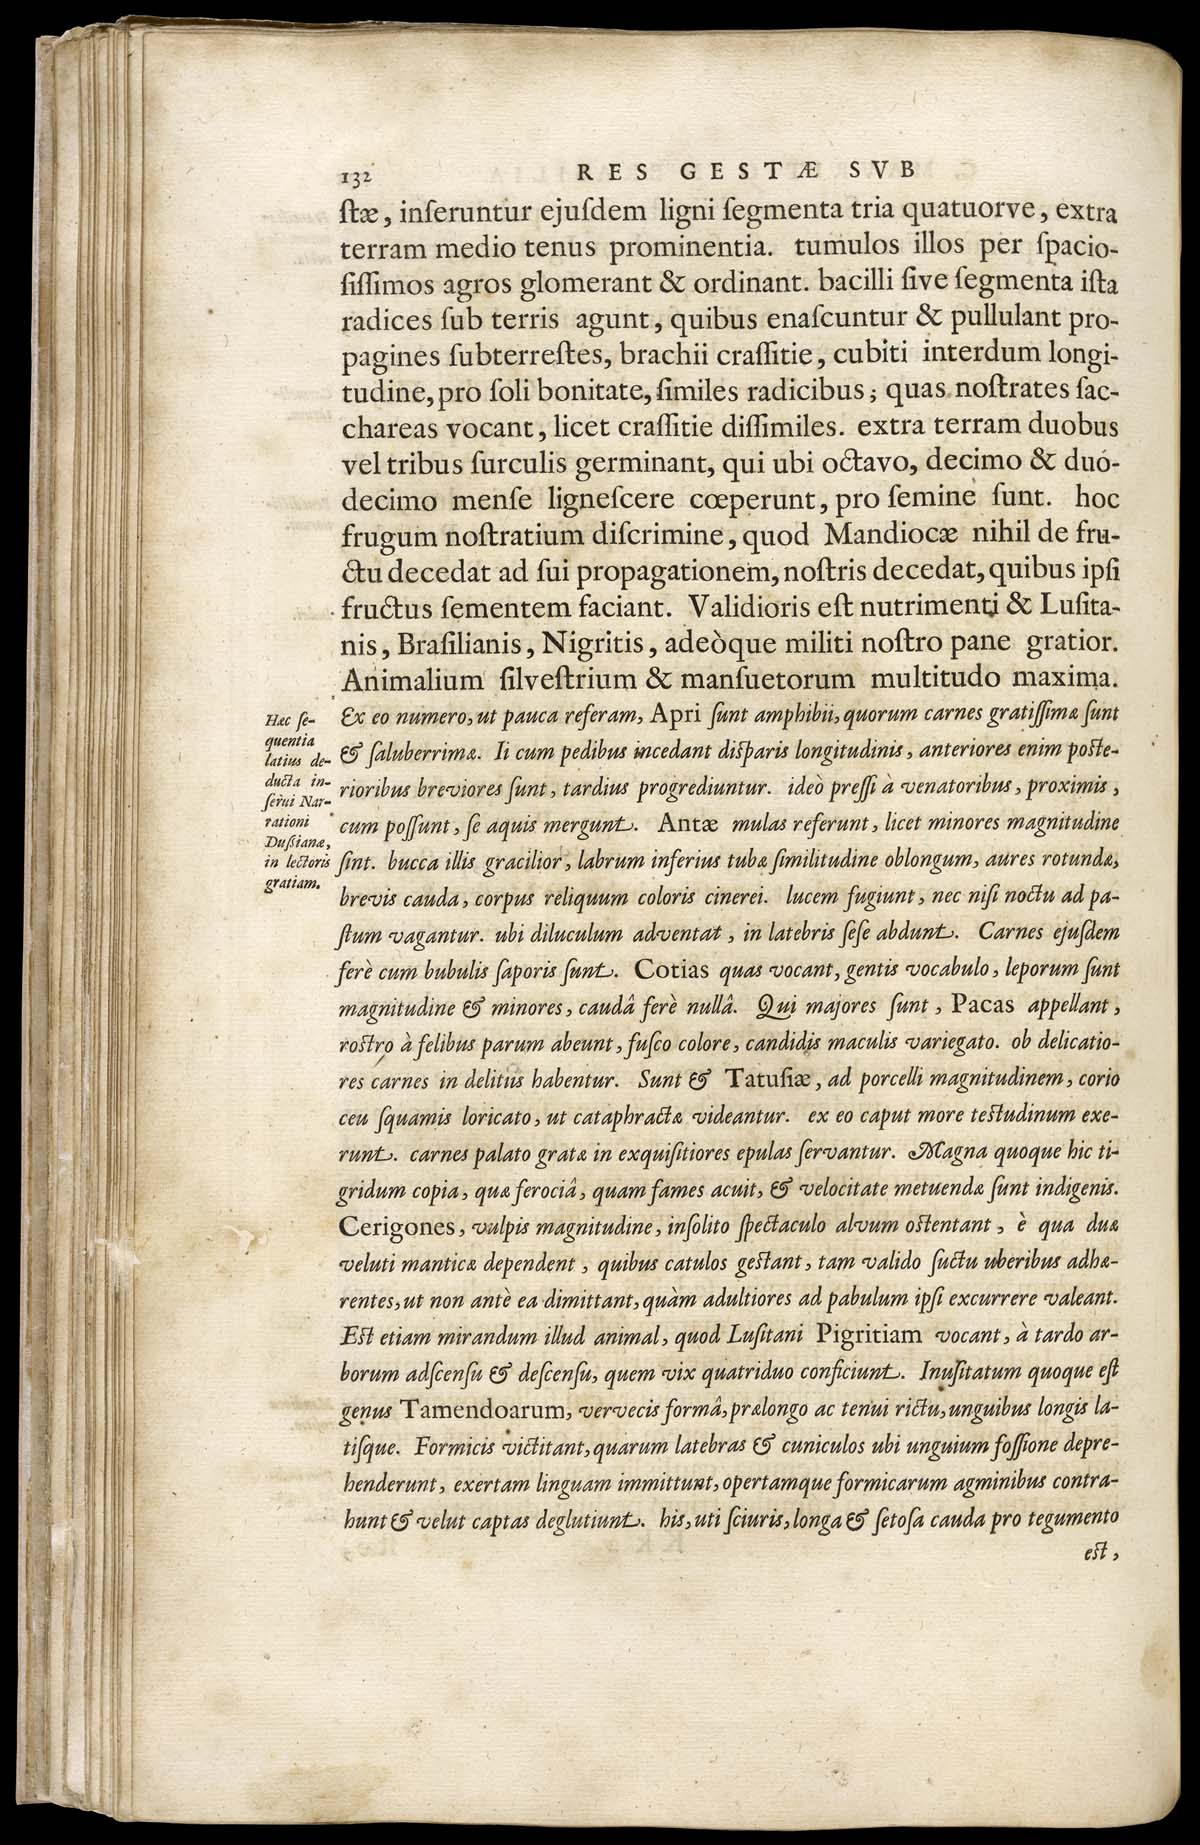 132 RES GESTÆ SVB
ſtæ, inſeruntur ejuſdem ligni ſegmenta tria quatuorve, extra
terram medio tenus prominentia. tumulos illos per ſpacio-
ſiſſimos agros glomerant & ordinant. bacilli ſive ſegmenta iſta
radices ſub terris agunt, quibus enaſcuntur & pullulant pro-
pagines ſubterreſtes, brachii craſſitie, cubiti interdum longi-
tudine, pro ſoli bonitate, ſimiles radicibus; quas noſtrates ſac-
chareas vocant, licet craſſitie diſſimiles. extra terram duobus
vel tribus ſurculis germinant, qui ubi octavo, decimo & duó-
decimo menſe ligneſcere cœperunt, pro ſemine ſunt. hoc
frugum noſtratium diſcrimine, quod Mandiocæ nihil de fru-
ctu decedat ad ſui propagationem, noſtris decedat, quibus ipſi
fructus ſementem faciant. Validioris eſt nutrimenti & Luſita-
nis, Braſilianis, Nigritis, adeòque militi noſtro pane gratior.
Animalium ſilveſtrium & manſuetorum multitudo maxima.
Ex eo numero, ut pauca referam, Apri ſunt amphibii, quorum carnes gratiſſimæ ſunt
& ſaluberrimæ. Ii cum pedibus incedant diſparis longitudinis, anteriores enim poſte-
rioribus breviores ſunt, tardius progrediuntur. ideò preſſi à venatoribus, proximis,
cum poſſunt, ſe aquis mergunt. Antæ mulas referunt, licet minores magnitudine
ſint. bucca illis gracilior, labrum inferius tubæ ſimilitudine oblongum, aures rotundæ,
brevis cauda, corpus reliquum coloris cinerei. lucem fugiunt, nec niſi noctu ad pa-
ſtum vagantur. ubi diluculum adventat, in latebris ſeſe abdunt. Carnes ejuſdem
ferè cum bubulis ſaporis ſunt. Cotias quas vocant, gentis vocabulo, leporum ſunt
magnitudine & minores, caudâ ferè nullâ. Qui majores ſunt, Pacas appellant,
roſtro à felibus parum abeunt, fuſco colore, candidis maculis variegato. ob delicatio-
res carnes in delitiis habentur. Sunt & Tatuſiæ, ad porcelli magnitudinem, corio
ceu ſquamis loricato, ut cataphractæ videantur. ex eo caput more teſtudinum exe-
runt. carnes palato gratæ in exquiſitiores epulas ſervantur. Magna quoque hic ti-
gridum copia, quæ ferociâ, quam fames acuit, & velocitate metuendæ ſunt indigenis.
Cerigones, vulpis magnitudine, inſolito ſpectaculo alvum oſtentant, è qua duæ
veluti manticæ dependent, quibus catulos geſtant, tam valido ſuctu uberibus adhæ-
rentes, ut non antè ea dimittant, quàm adultiores ad pabulum ipſi excurrere valeant.
Eſt etiam mirandum illud animal, quod Luſitani Pigritiam vocant, à tardo ar-
borum adſcenſu & deſcenſu, quem vix quatriduo conficiunt. Inuſitatum quoque eſt
genus Tamendoarum, vervecis formâ, prælongo ac tenui rictu, unguibus longis la-
tiſque. Formicis victitant, quarum latebras & cuniculos ubi unguium foſſione depre-
henderunt, exertam linguam immittunt, opertamque formicarum agminibus contra-
hunt & velut captas deglutiunt. his, uti ſciuris, longa & ſetoſa cauda pro tegumento
eſt,
Hæc ſe-
quentia
latius de-
ducta in-
ſerui Nar-
rationi
Dußianæ,
in lectoris
gratiam.